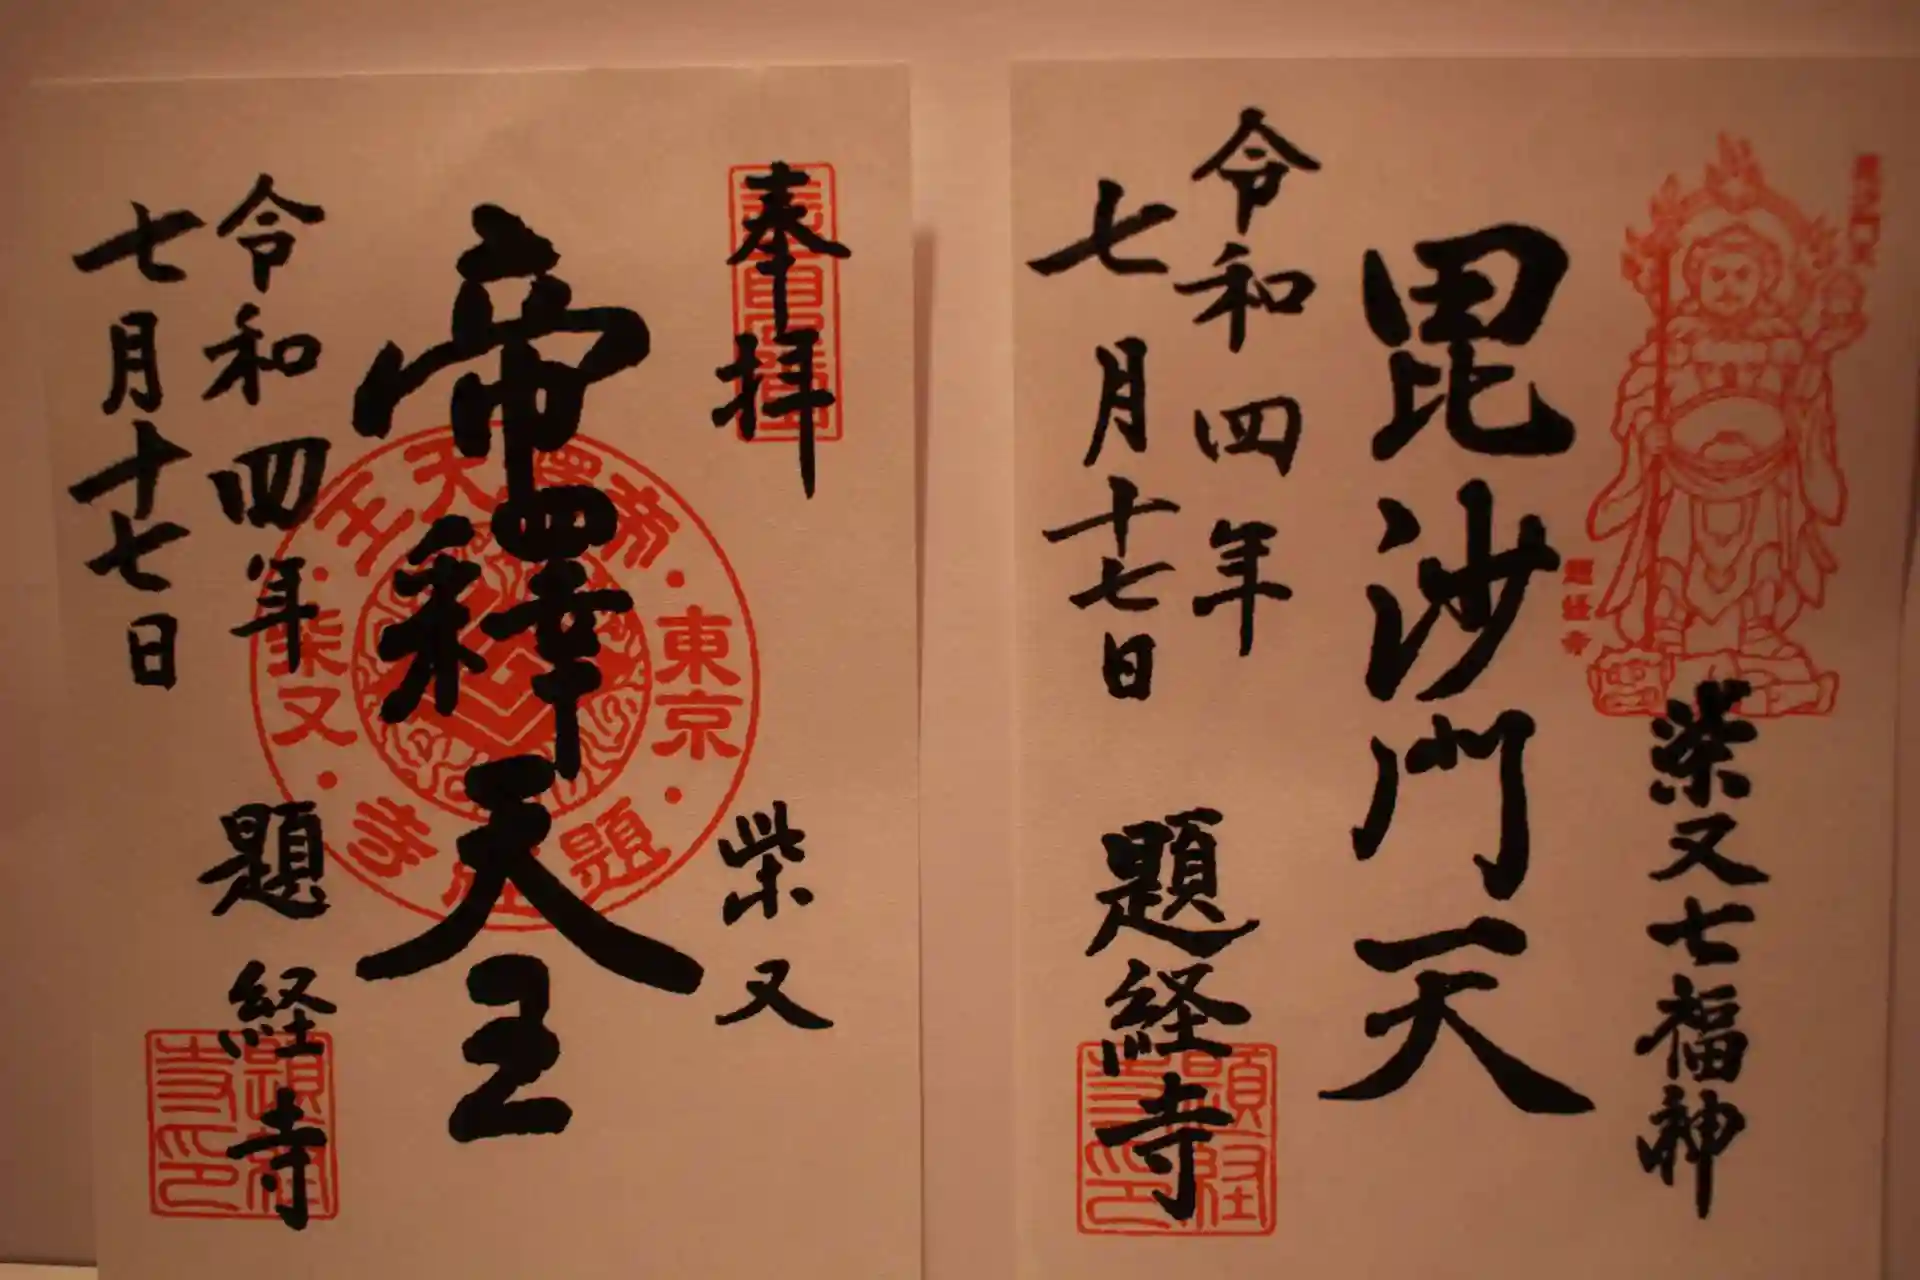 奉拝
柴又
帝釋天王
令和四年
題経寺
七月十七日
東京
帝釋天王
柴又
題経寺
柴又七福神
毘沙門天
令和四年
題経寺
七月十七日
題経寺